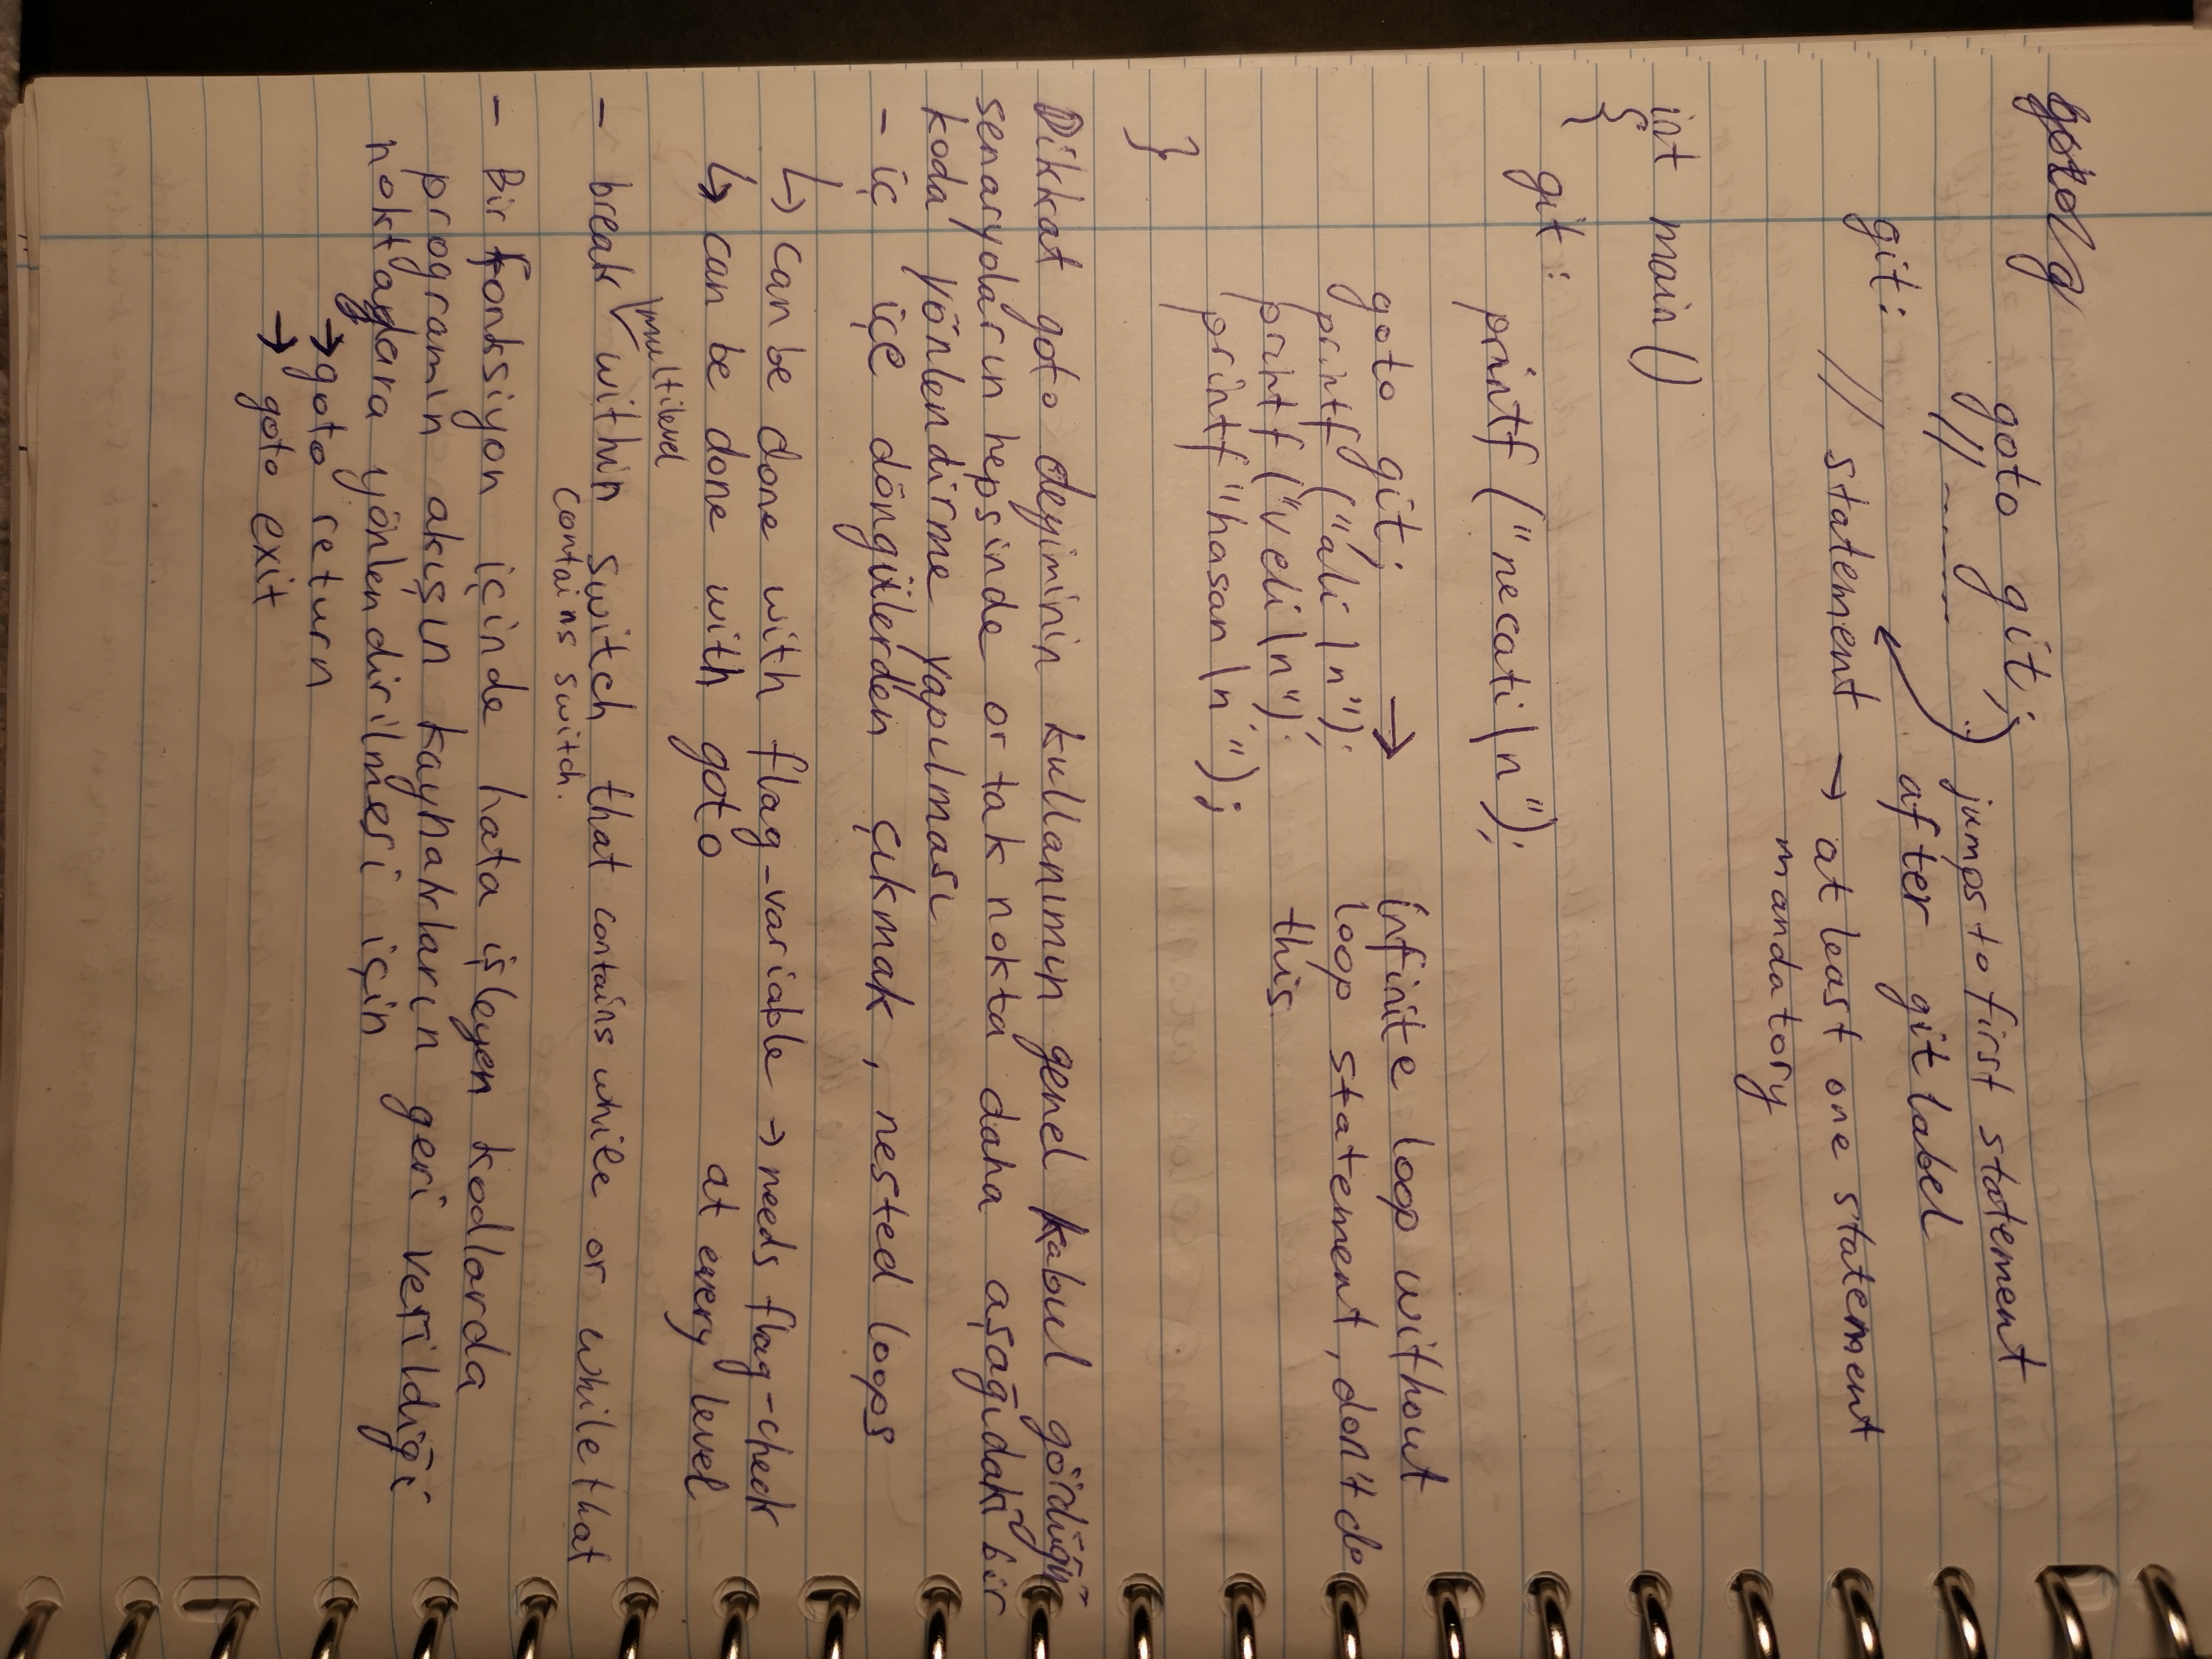 goto git;
// -------
jumps to first statement
after git label
git:
// statement → at least one statement
mandatory
int main()
{
git:
printf ("necati\n");
goto git; → infinite loop without
printf ("ali\n"); loop statement, don't do
printf ("veli\n"); this.
printf "hasan\n");
}
Dikkat goto deyiminin kullanımın genel kabul gördüğü
senaryoların hepsinde ortak nokta daha aşağıdaki bir
koda yönlendirme yapılması
- iç içe döngülerden çıkmak, nested loops
↳ can be done with flag-variable → needs flag-check
↳ can be done with goto at every level
multilevel
- break within switch that contains while or while that
contains switch.
- Bir fonksiyon içinde hata işleyen kodlarda
programın akışın kaynakların geri verildiği
noktalara yönlendirilmesi için
→ goto return
→ goto exit